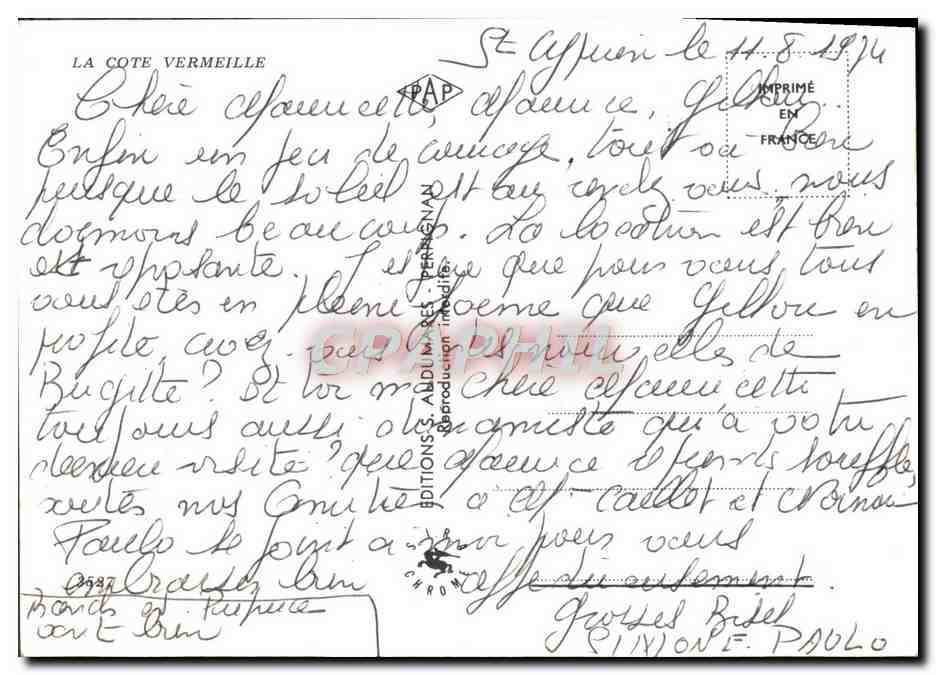 LA COTE VERMEILLE
St Cyprien le 11.8.1974
PAP
IMPRIMÉ
EN
FRANCE
Chère Mauricette, Maurice,
Enfin un peu de courage, tout va bien
puisque le soleil est au rendez vous, nous
dormons beaucoup. La location est bien
est reposante. J'espère que pour vous tous
vous êtes en pleine forme que en
profite, avez vous des nouvelles de
Brigitte? Et toi ma chère Mauricette
toujours aussi dynamiste qu'à votre
dernière visite? que Maurice
nos Amitiés à et
Paulo se joint à moi pour vous
embrasser bien affectueusement.
Grosses Bises
SIMONE. PAULO
et
vont bien
EDITIONS S. AUDUMARES - PERPIGNAN
Reproduction interdite.
CPAPHIL
CHROM